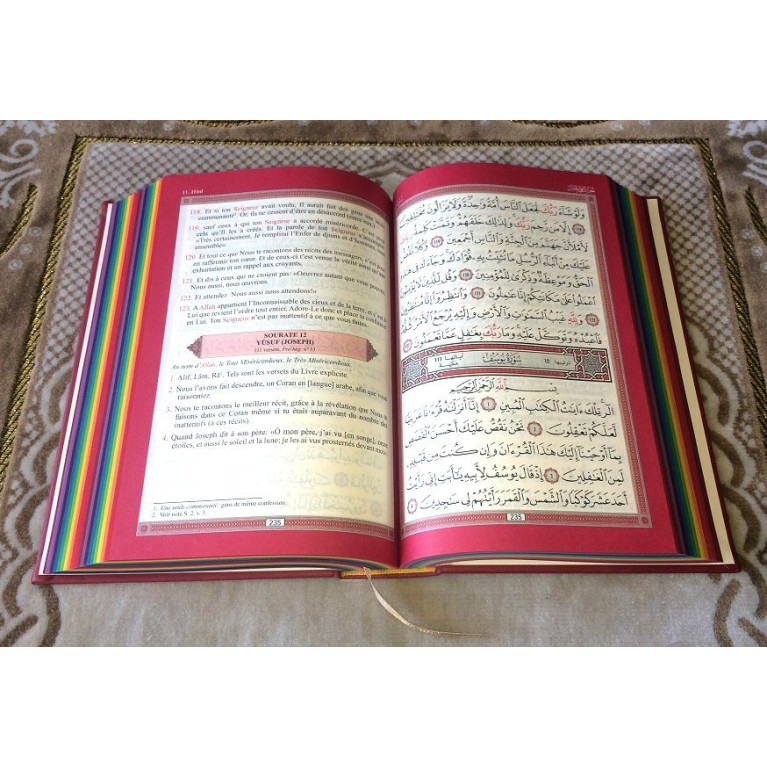 11. Hûd
118. Et si ton Seigneur avait voulu, Il aurait fait des gens une seule
communauté¹. Or, ils ne cessent d'être en désaccord (entre eux),
119. sauf ceux à qui ton Seigneur a accordé miséricorde. C'est pour
cela qu'Il les a créés. Et la parole de ton Seigneur
«Très certainement, Je remplirai l'Enfer de djinns et d'hommes,
ensemble».
120. Et tout ce que Nous te racontons des récits des messagers, c'est pour
en raffermir ton cœur. Et de ceux-ci t'est venue la vérité ainsi qu'une
exhortation et un rappel aux croyants.
121. Et dis à ceux qui ne croient pas: «Oeuvrez autant que vous pouvez.
Nous aussi, nous œuvrons.
122. Et attendez. Nous aussi nous attendons!»
123. A Allah appartient l'Inconnaissable des cieux et de la terre, et c'est à
Lui que revient l'ordre tout entier. Adore-Le donc et place ta confiance
en Lui. Ton Seigneur n'est pas inattentif à ce que vous faites.
SOURATE 12
YÛSUF (JOSEPH)
Au nom d'Allah, le Tout Miséricordieux, le Très Miséricordieux.
1. Alif, Lâm, Râ². Tels sont les versets du Livre explicite.
2. Nous l'avons fait descendre, un Coran en [langue] arabe, afin que vous
raisonniez.
3. Nous te racontons le meilleur récit, grâce à la révélation que Nous te
faisons dans ce Coran même si tu étais auparavant du nombre des
inattentifs (à ces récits).
4. Quand Joseph dit à son père: «Ô mon père, j'ai vu [en songe], onze
étoiles, et aussi le soleil et la lune; je les ai vus prosternés devant moi».
1. Une seule communauté: gens de même confession.
2. Voir note S. 2. v. 1.
235
وَلَوْ شَآءَ رَبُّكَ لَجَعَلَ ٱلنَّاسَ أُمَّةً وَٰحِدَةً وَلَا يَزَالُونَ مُخْتَلِفِينَ
١١٨ إِلَّا مَن رَّحِمَ رَبُّكَ وَلِذَٰلِكَ خَلَقَهُمْ وَتَمَّتْ كَلِمَةُ رَبِّكَ
لَأَمْلَأَنَّ جَهَنَّمَ مِنَ ٱلْجِنَّةِ وَٱلنَّاسِ أَجْمَعِينَ ١١٩ وَكُلًّا نَّقُصُّ
عَلَيْكَ مِنْ أَنۢبَآءِ ٱلرُّسُلِ مَا نُثَبِّتُ بِهِۦ فُؤَادَكَ وَجَآءَكَ فِى هَٰذِهِ
ٱلْحَقُّ وَمَوْعِظَةٌ وَذِكْرَىٰ لِلْمُؤْمِنِينَ ١٢٠ وَقُل لِّلَّذِينَ لَا يُؤْمِنُونَ
ٱعْمَلُوا۟ عَلَىٰ مَكَانَتِكُمْ إِنَّا عَٰمِلُونَ ١٢١ وَٱنتَظِرُوٓا۟ إِنَّا مُنتَظِرُونَ
١٢٢ وَلِلَّهِ غَيْبُ ٱلسَّمَٰوَٰتِ وَٱلْأَرْضِ وَإِلَيْهِ يُرْجَعُ ٱلْأَمْرُ كُلُّهُۥ
فَٱعْبُدْهُ وَتَوَكَّلْ عَلَيْهِ وَمَا رَبُّكَ بِغَٰفِلٍ عَمَّا تَعْمَلُونَ ١٢٣
ترتيبها ١٢ سُورَةُ يُوسُفَ آياتها ١١١ مكية
بِسْمِ ٱللَّهِ ٱلرَّحْمَٰنِ ٱلرَّحِيمِ
الٓر تِلْكَ ءَايَٰتُ ٱلْكِتَٰبِ ٱلْمُبِينِ ١ إِنَّآ أَنزَلْنَٰهُ قُرْءَٰنًا عَرَبِيًّا
لَّعَلَّكُمْ تَعْقِلُونَ ٢ نَحْنُ نَقُصُّ عَلَيْكَ أَحْسَنَ ٱلْقَصَصِ
بِمَآ أَوْحَيْنَآ إِلَيْكَ هَٰذَا ٱلْقُرْءَانَ وَإِن كُنتَ مِن قَبْلِهِۦ
لَمِنَ ٱلْغَٰفِلِينَ ٣ إِذْ قَالَ يُوسُفُ لِأَبِيهِ يَٰٓأَبَتِ إِنِّى رَأَيْتُ
أَحَدَ عَشَرَ كَوْكَبًا وَٱلشَّمْسَ وَٱلْقَمَرَ رَأَيْتُهُمْ لِى سَٰجِدِينَ ٤
235